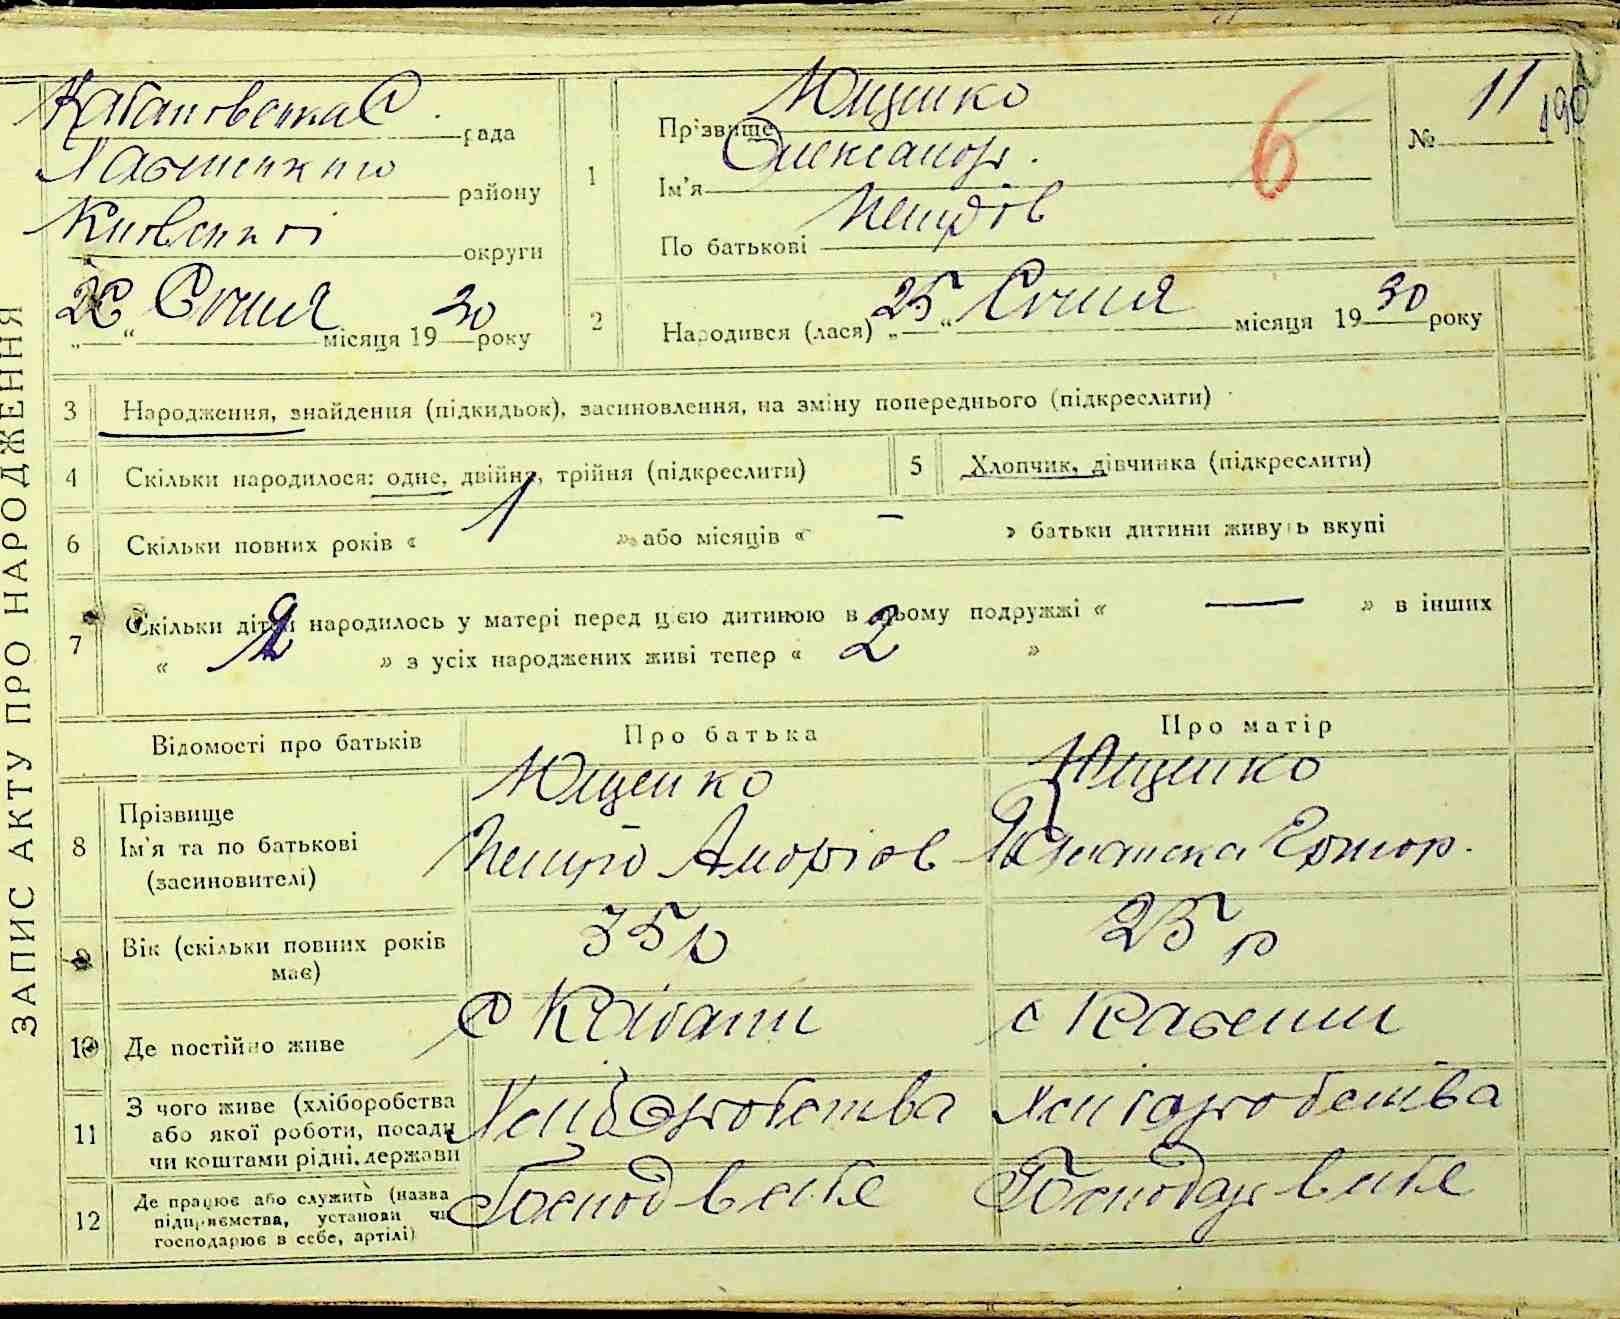 ЗАПИС АКТУ ПРО НАРОДЖЕННЯ
Кабановська С. рада
району
Київської округи
26 Січня місяця 1930 року
1
Прізвище Ющенко
Ім'я Олександр.
По батькові Петров
6
№ 11
190
2
Народився (лася) „25" Січня місяця 1930 року
3 Народження, знайдення (підкидьок), засиновлення, на зміну попереднього (підкреслити)
4 Скільки народилося: одне, двійня, трійня (підкреслити)
5 Хлопчик, дівчинка (підкреслити)
6 Скільки повних років « 1 » або місяців « – » батьки дитини живуть вкупі
7 Скільки дітей народилось у матері перед цією дитиною в цьому подружжі « — » в інших
« » з усіх народжених живі тепер « 2 »
Відомості про батьків Про батька Про матір
8 Прізвище
Ім'я та по батькові
(засиновителі)
Ющенко
Петро Андріов
Ющенко
9 Вік (скільки повних років має)
35 р
25 р
10 Де постійно живе
с Кабани
с Кабани
11 З чого живе (хліборобства
або якої роботи, посади
чи коштами рідні, держави
Хліборобства
Хліборобства
12 Де працює або служить (назва
підприємства, установи чи
господарює в себе, артілі)
Господ в себе
Господар в себе